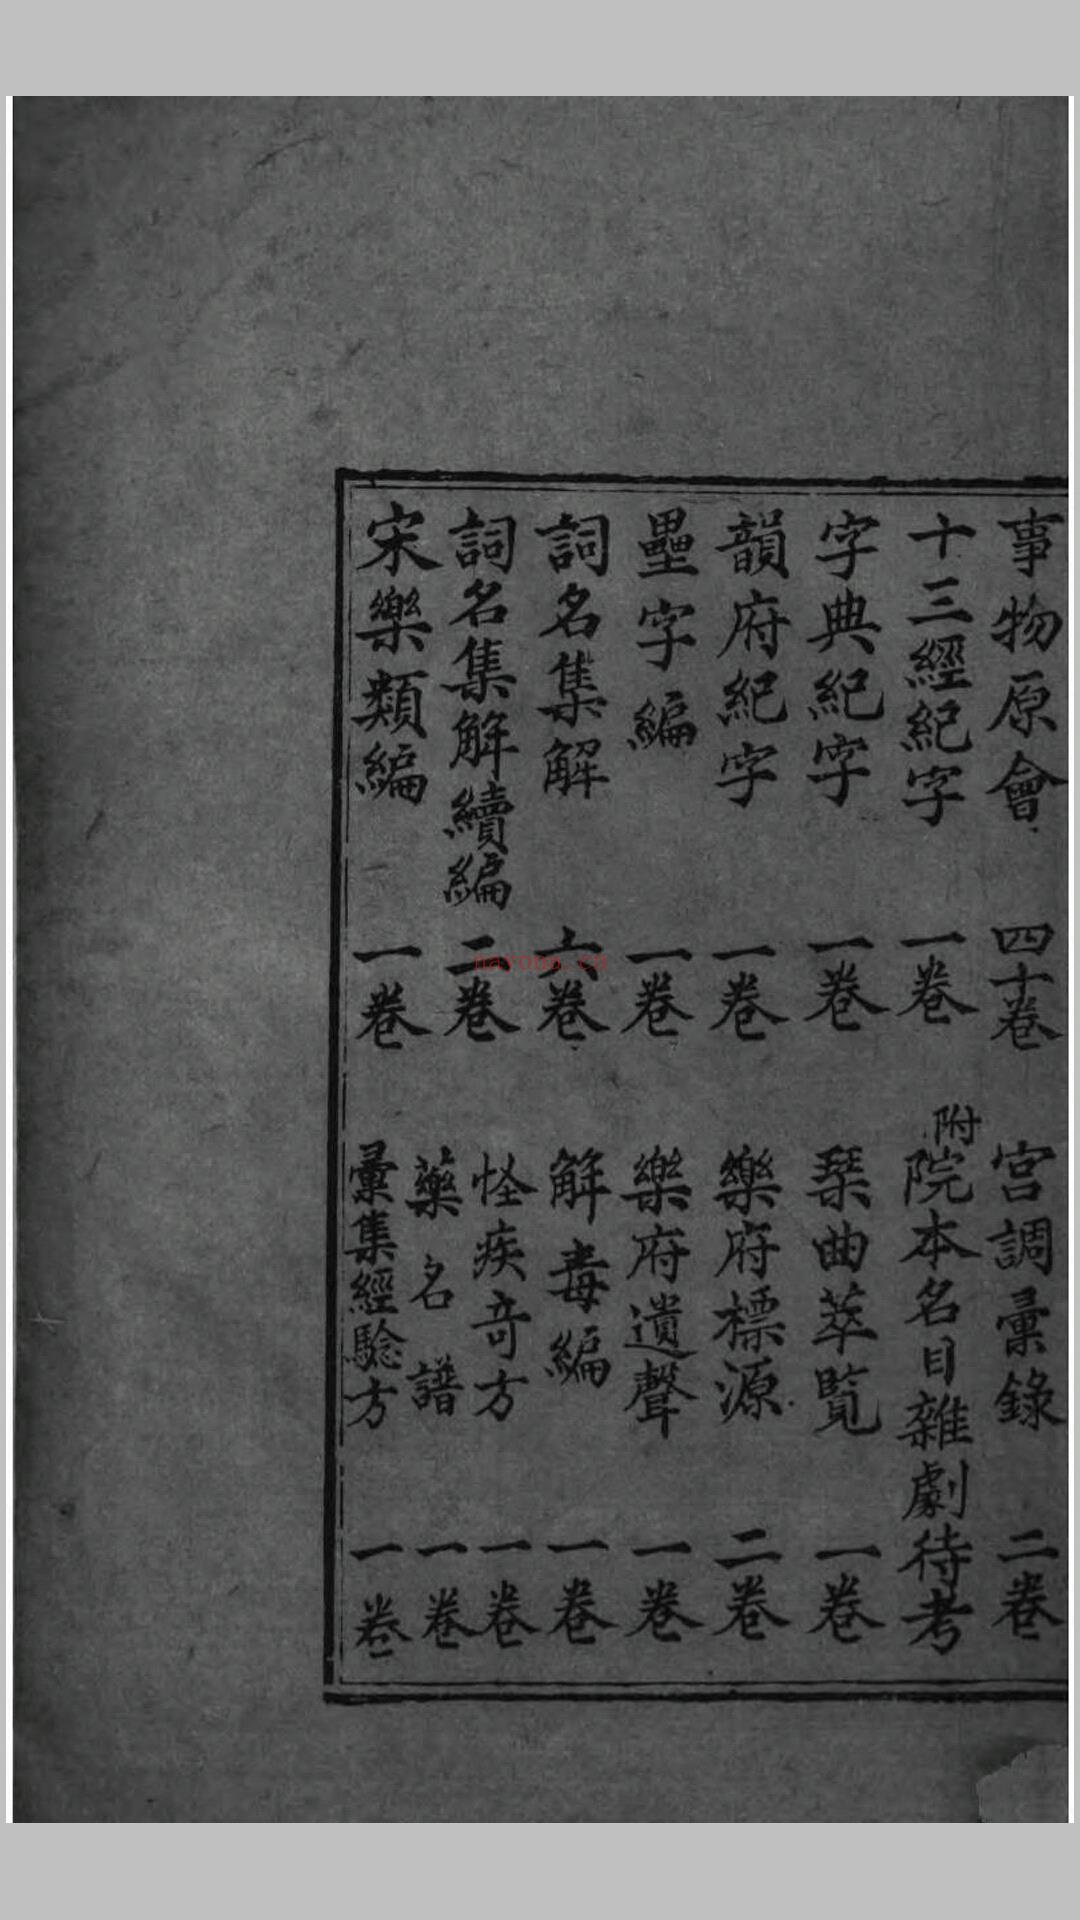 事物原會 四十卷 宮調彙錄 二卷
十三經紀字 一卷 附院本名目雜劇待考
字典紀字 一卷 琴曲萃覽 一卷
韻府紀字 一卷 樂府標源 二卷
壘字編 一卷 樂府遺聲 一卷
詞名集解 六卷 解毒編 一卷
詞名集解續編 二卷 怪疾奇方 一卷
藥名譜 一卷
宋樂類編 一卷 彙集經驗方 一卷
nayona.cn